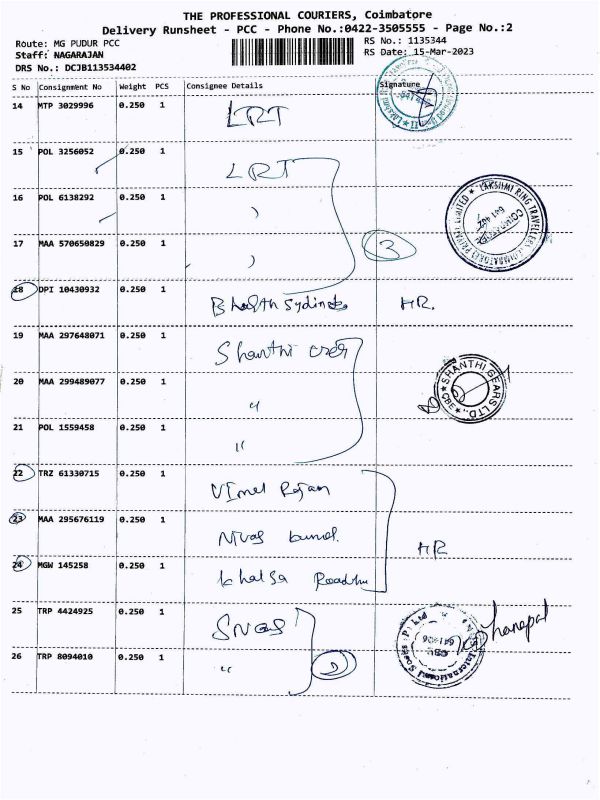 THE PROFESSIONAL COURIERS, Coimbatore
Delivery Runsheet - PCC - Phone No.:0422-3505555 - Page No.:2
Route: MG PUDUR PCC RS No.: 1135344
Staff: NAGARAJAN RS Date: 15-Mar-2023
DRS No.: DCJB113534402
S No Consignment No Weight PCS Consignee Details Signature
14 MTP 3029996 0.250 1 LRT
15 POL 3256052 0.250 1 LRT
16 POL 6138292 0.250 1 ,
LAKSHMI RING TRAVELLERS COIMBATORE PRIVATE LIMITED
17 MAA 570650829 0.250 1 , 3
18 DPI 10430932 0.250 1 HR.
19 MAA 297648071 0.250 1 Shanthi
20 MAA 299489077 0.250 1 "
SHANTHI GEARS LTD., CBE
21 POL 1559458 0.250 1 "
22 TRZ 61330715 0.250 1 Vimel Rajan
23 MAA 295676119 0.250 1 HR
24 MGW 145258 0.250 1
25 TRP 4424925 0.250 1 SNGS
26 TRP 8094010 0.250 1 " 2